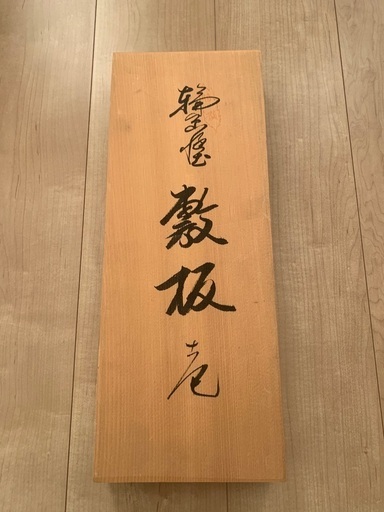 輪島塗 敷板 壱